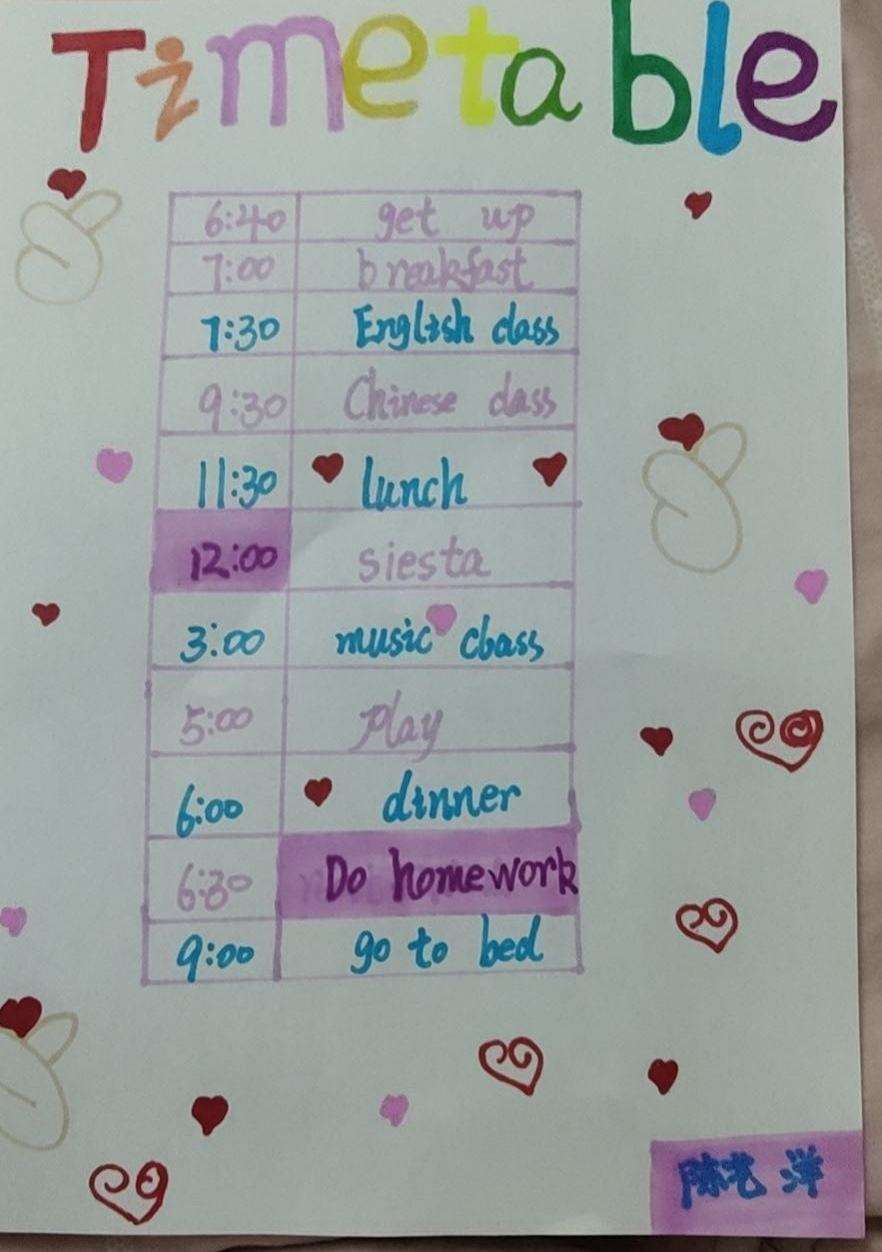 Timetable
6:40 get up
7:00 breakfast
7:30 English class
9:30 Chinese class
11:30 lunch
12:00 siesta
3:00 music cbass
5:00 play
6:00 dinner
6:30 Do homework
9:00 go to bed
陈艺洋